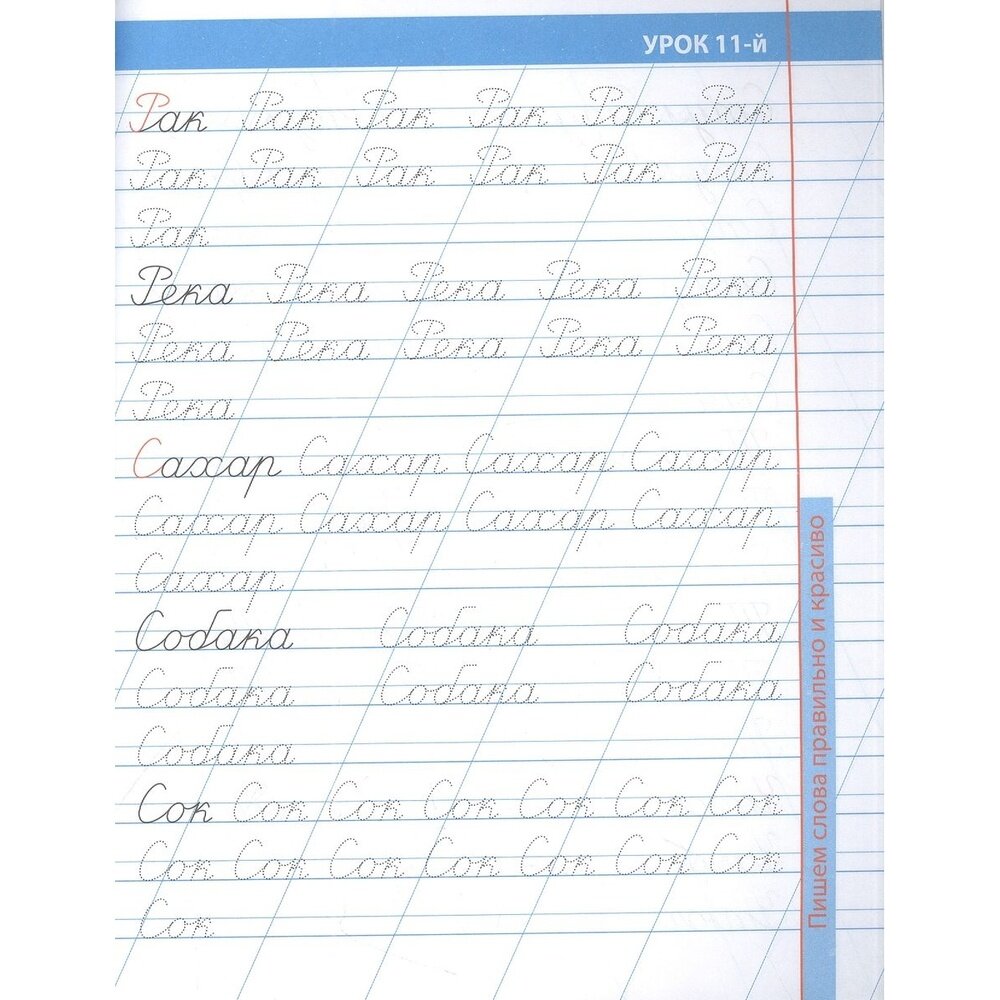 УРОК 11-й
Рак Рак Рак Рак Рак Рак
Рак Рак Рак Рак Рак Рак
Рак
Река Река Река Река Река
Река Река Река Река Река
Река
Сахар Сахар Сахар Сахар
Сахар Сахар Сахар Сахар
Сахар
Собака Собака Собака
Собака Собака Собака
Собака
Сок Сок Сок Сок Сок Сок Сок
Сок Сок Сок Сок Сок Сок Сок
Сок
Пишем слова правильно и красиво